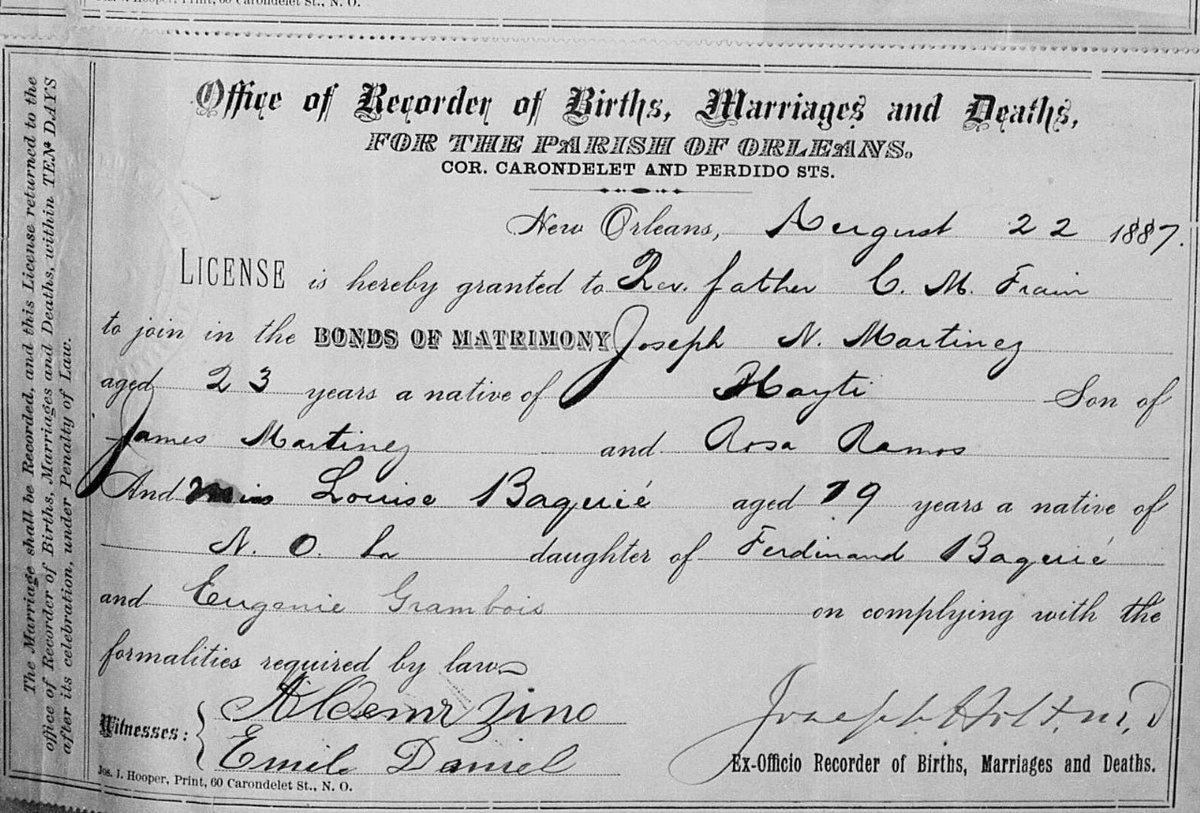 Jos. J. Hooper, Print, 60 Carondelet St., N. O.
The Marriage shall be Recorded, and this License returned to the
office of Recorder of Births, Marriages and Deaths, within TEN DAYS
after its celebration, under Penalty of Law.
Office of Recorder of Births, Marriages and Deaths,
FOR THE PARISH OF ORLEANS.
COR. CARONDELET AND PERDIDO STS.
New Orleans, August 22 1887.
LICENSE is hereby granted to Rev. father C. M. Frain
to join in the BONDS OF MATRIMONY Joseph N. Martinez
aged 23 years a native of Hayti Son of
James Martinez and Rosa Ramos
And Miss Louise Baquié aged 19 years a native of
N. O. La daughter of Ferdinand Baquié
and Eugenie Grambois on complying with the
formalities required by law
Witnesses: Zino
Emile Daniel
Joseph Holt M.D
Ex-Officio Recorder of Births, Marriages and Deaths.
Jos. J. Hooper, Print, 60 Carondelet St., N. O.